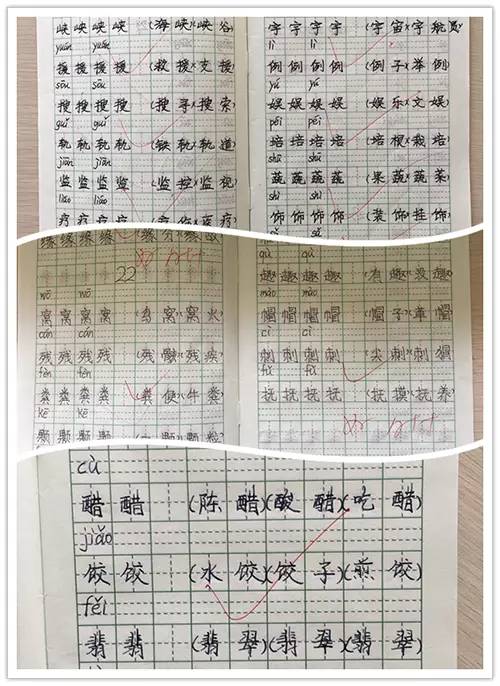 峡 峡 峡 峡 (海 峡)(峡 谷)
yuán yuán
援 援 援 援 (救 援)(支 援)
sōu sōu
搜 搜 搜 搜 (搜 寻)(搜 索)
guǐ guǐ
轨 轨 轨 轨 (铁 轨)(轨 道)
jiān jiān
监 监 监 监 (监 控)(监 视)
liáo liáo
疗 疗 疗 疗
宇 宇 宇 宇 (宇 宙)(宇 航员)
lì lì
例 例 例 例 (例 子)(举 例)
yú yú
娱 娱 娱 娱 (娱 乐)(文 娱)
péi péi
培 培 培 培 (培 根)(栽 培)
shū shū
蔬 蔬 蔬 蔬 (果 蔬)(蔬 菜)
shì shì
饰 饰 饰 饰 (装 饰)(挂 饰)
sǎ
缘 缘 缘 缘
22
wō wō
窝 窝 窝 窝 (鸟 窝)(窝 火)
cán cán
残 残 残 残 (残 酷)(残 疾)
fèn fèn
粪 粪 粪 粪 (粪 便)(牛 粪)
kē kē
颗 颗 颗 颗
qù qù
趣 趣 趣 趣 (有 趣)(没 趣)
mào mào
帽 帽 帽 帽 (帽 子)(草 帽)
cì cì
刺 刺 刺 刺 (尖 刺)(刺 猬)
fǔ fǔ
抚 抚 抚 抚 (抚 摸)(抚 养)
cù
醋 醋 (陈 醋)(酸 醋)(吃 醋)
jiǎo
饺 饺 (水 饺)(饺 子)(煎 饺)
fěi
翡 翡 (翡 翠)(翡 翠)(翡 翠)